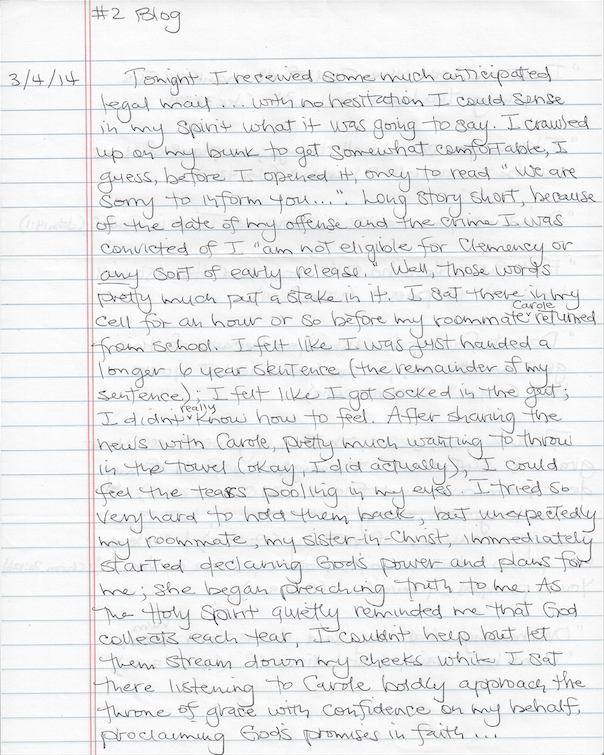 #2 Blog
3/4/14 Tonight I received some much anticipated
legal mail... with no hesitation I could sense
in my spirit what it was going to say. I crawled
up on my bunk to get somewhat comfortable, I
guess, before I opened it, only to read "We are
sorry to inform you...". Long story short, because
of the date of my offense and the crime I was
convicted of I "am not eligible for Clemency or
any sort of early release." Well, those words
pretty much put a stake in it. I sat there in my
cell for an hour or so before my roommate Carole returned
from school. I felt like I was just handed a
longer 6 year sentence (the remainder of my
sentence); I felt like I got socked in the gut;
I didnt really know how to feel. After sharing the
news with Carole, pretty much wanting to throw
in the towel (okay, I did actually), I could
feel the tears pooling in my eyes. I tried so
very hard to hold them back, but unexpectedly
my roommate, my sister-in-Christ, immediately
started declaring God's power and plans for
me; she began preaching truth to me. As
the Holy Spirit quietly reminded me that God
collects each tear, I couldn't help but let
them stream down my cheeks while I sat
there listening to Carole boldly approach the
throne of grace with confidence on my behalf,
proclaiming God's promises in faith...